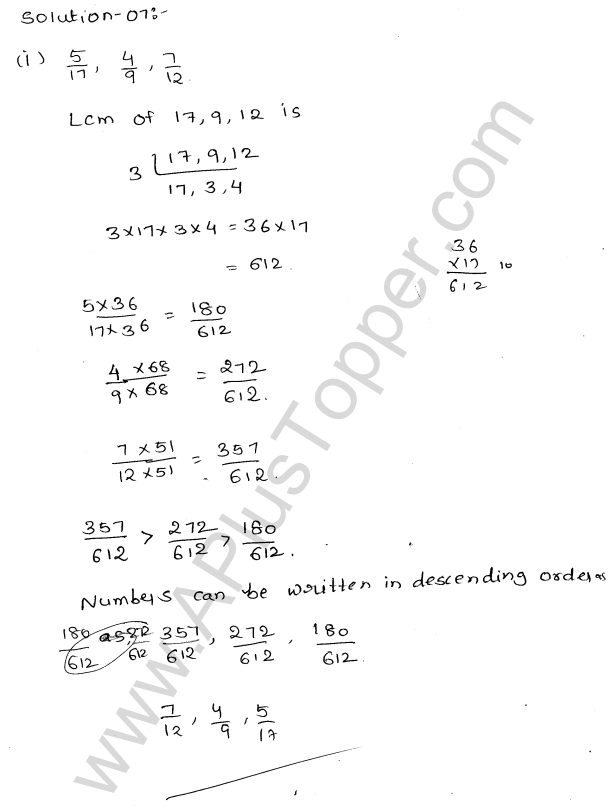 Solution-07:-
(i) 5/17, 4/9, 7/12.
Lcm of 17,9,12 is
3 | 17,9,12
17,3,4
3×17×3×4 = 36×17
= 612.
36
×17 10
612
5×36/17×36 = 180/612
4×68/9×68 = 272/612.
7×51/12×51 = 357/612.
357/612 > 272/612 > 180/612.
Numbers can be written in descending order as
180/612 357/612, 272/612, 180/612.
7/12, 4/9, 5/17
www.APlusTopper.com